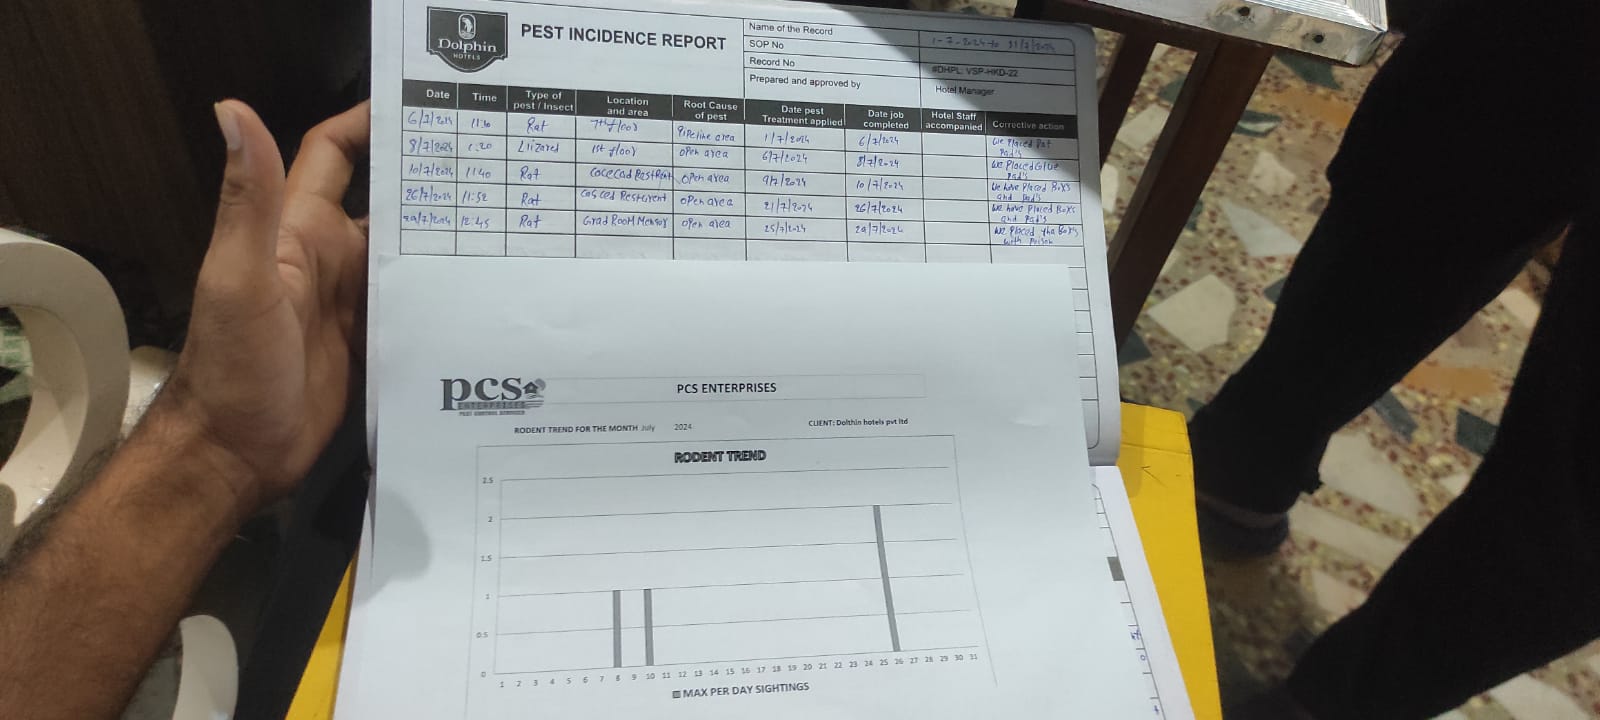 Dolphin
HOTELS
PEST INCIDENCE REPORT
Name of the Record
1-7-2024 to 31/7/2024
SOP No
Record No
#DHPL: VSP-HKD-22
Prepared and approved by
Hotel Manager
Date Time Type of pest / Insect Location and area Root Cause of pest Date pest Treatment applied Date job completed Hotel Staff accompanied Corrective action
6/7/2024 11:10 Rat 7th floor Pipeline area 1/7/2024 6/7/2024 We Placed Rat Pad's
8/7/2024 1:20 Lizared 1st floor open area 6/7/2024 8/7/2024 We Placed Glue Pad's
10/7/2024 11:40 Rat open area 9/7/2024 10/7/2024 We have Placed Box's and Pad's
26/7/2024 11:52 Rat open area 21/7/2024 26/7/2024 We have Placed Box's and Pad's
29/7/2024 12:45 Rat open area 25/7/2024 29/7/2024 We Placed tha Box's with Poison
pcs
ENTERPRISES
PEST CONTROL SERVICES
PCS ENTERPRISES
RODENT TREND FOR THE MONTH July 2024
CLIENT: Dolthin hotels pvt ltd
RODENT TREND
2.5
2
1.5
1
0.5
0
1 2 3 4 5 6 7 8 9 10 11 12 13 14 15 16 17 18 19 20 21 22 23 24 25 26 27 28 29 30 31
MAX PER DAY SIGHTINGS